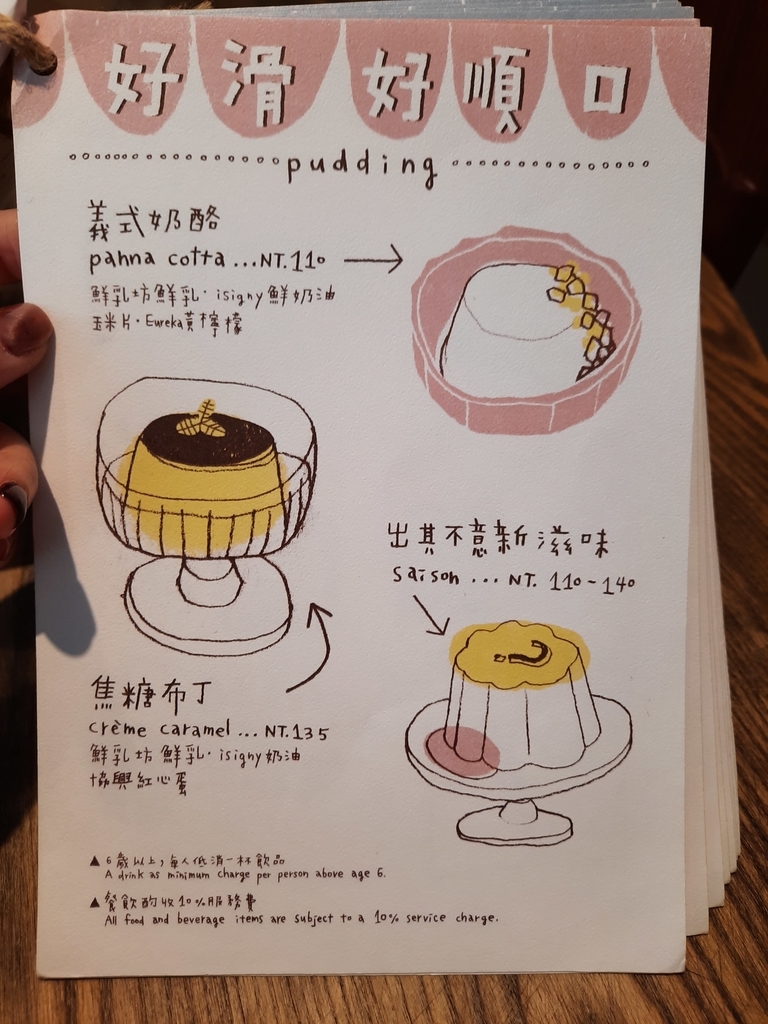 好滑好順口
pudding
義式奶酪
panna cotta ... NT.110
鮮乳坊鮮乳·isigny鮮奶油
玉米片·Eureka黃檸檬
出其不意新滋味
saison ... NT. 110~140
焦糖布丁
crème caramel ... NT.135
鮮乳坊 鮮乳·isigny奶油
協興紅心蛋
▲ 6歲以上,每人低消一杯飲品
A drink as minimum charge per person above age 6.
▲ 餐飲酌收10%服務費
All food and beverage items are subject to a 10% service charge.